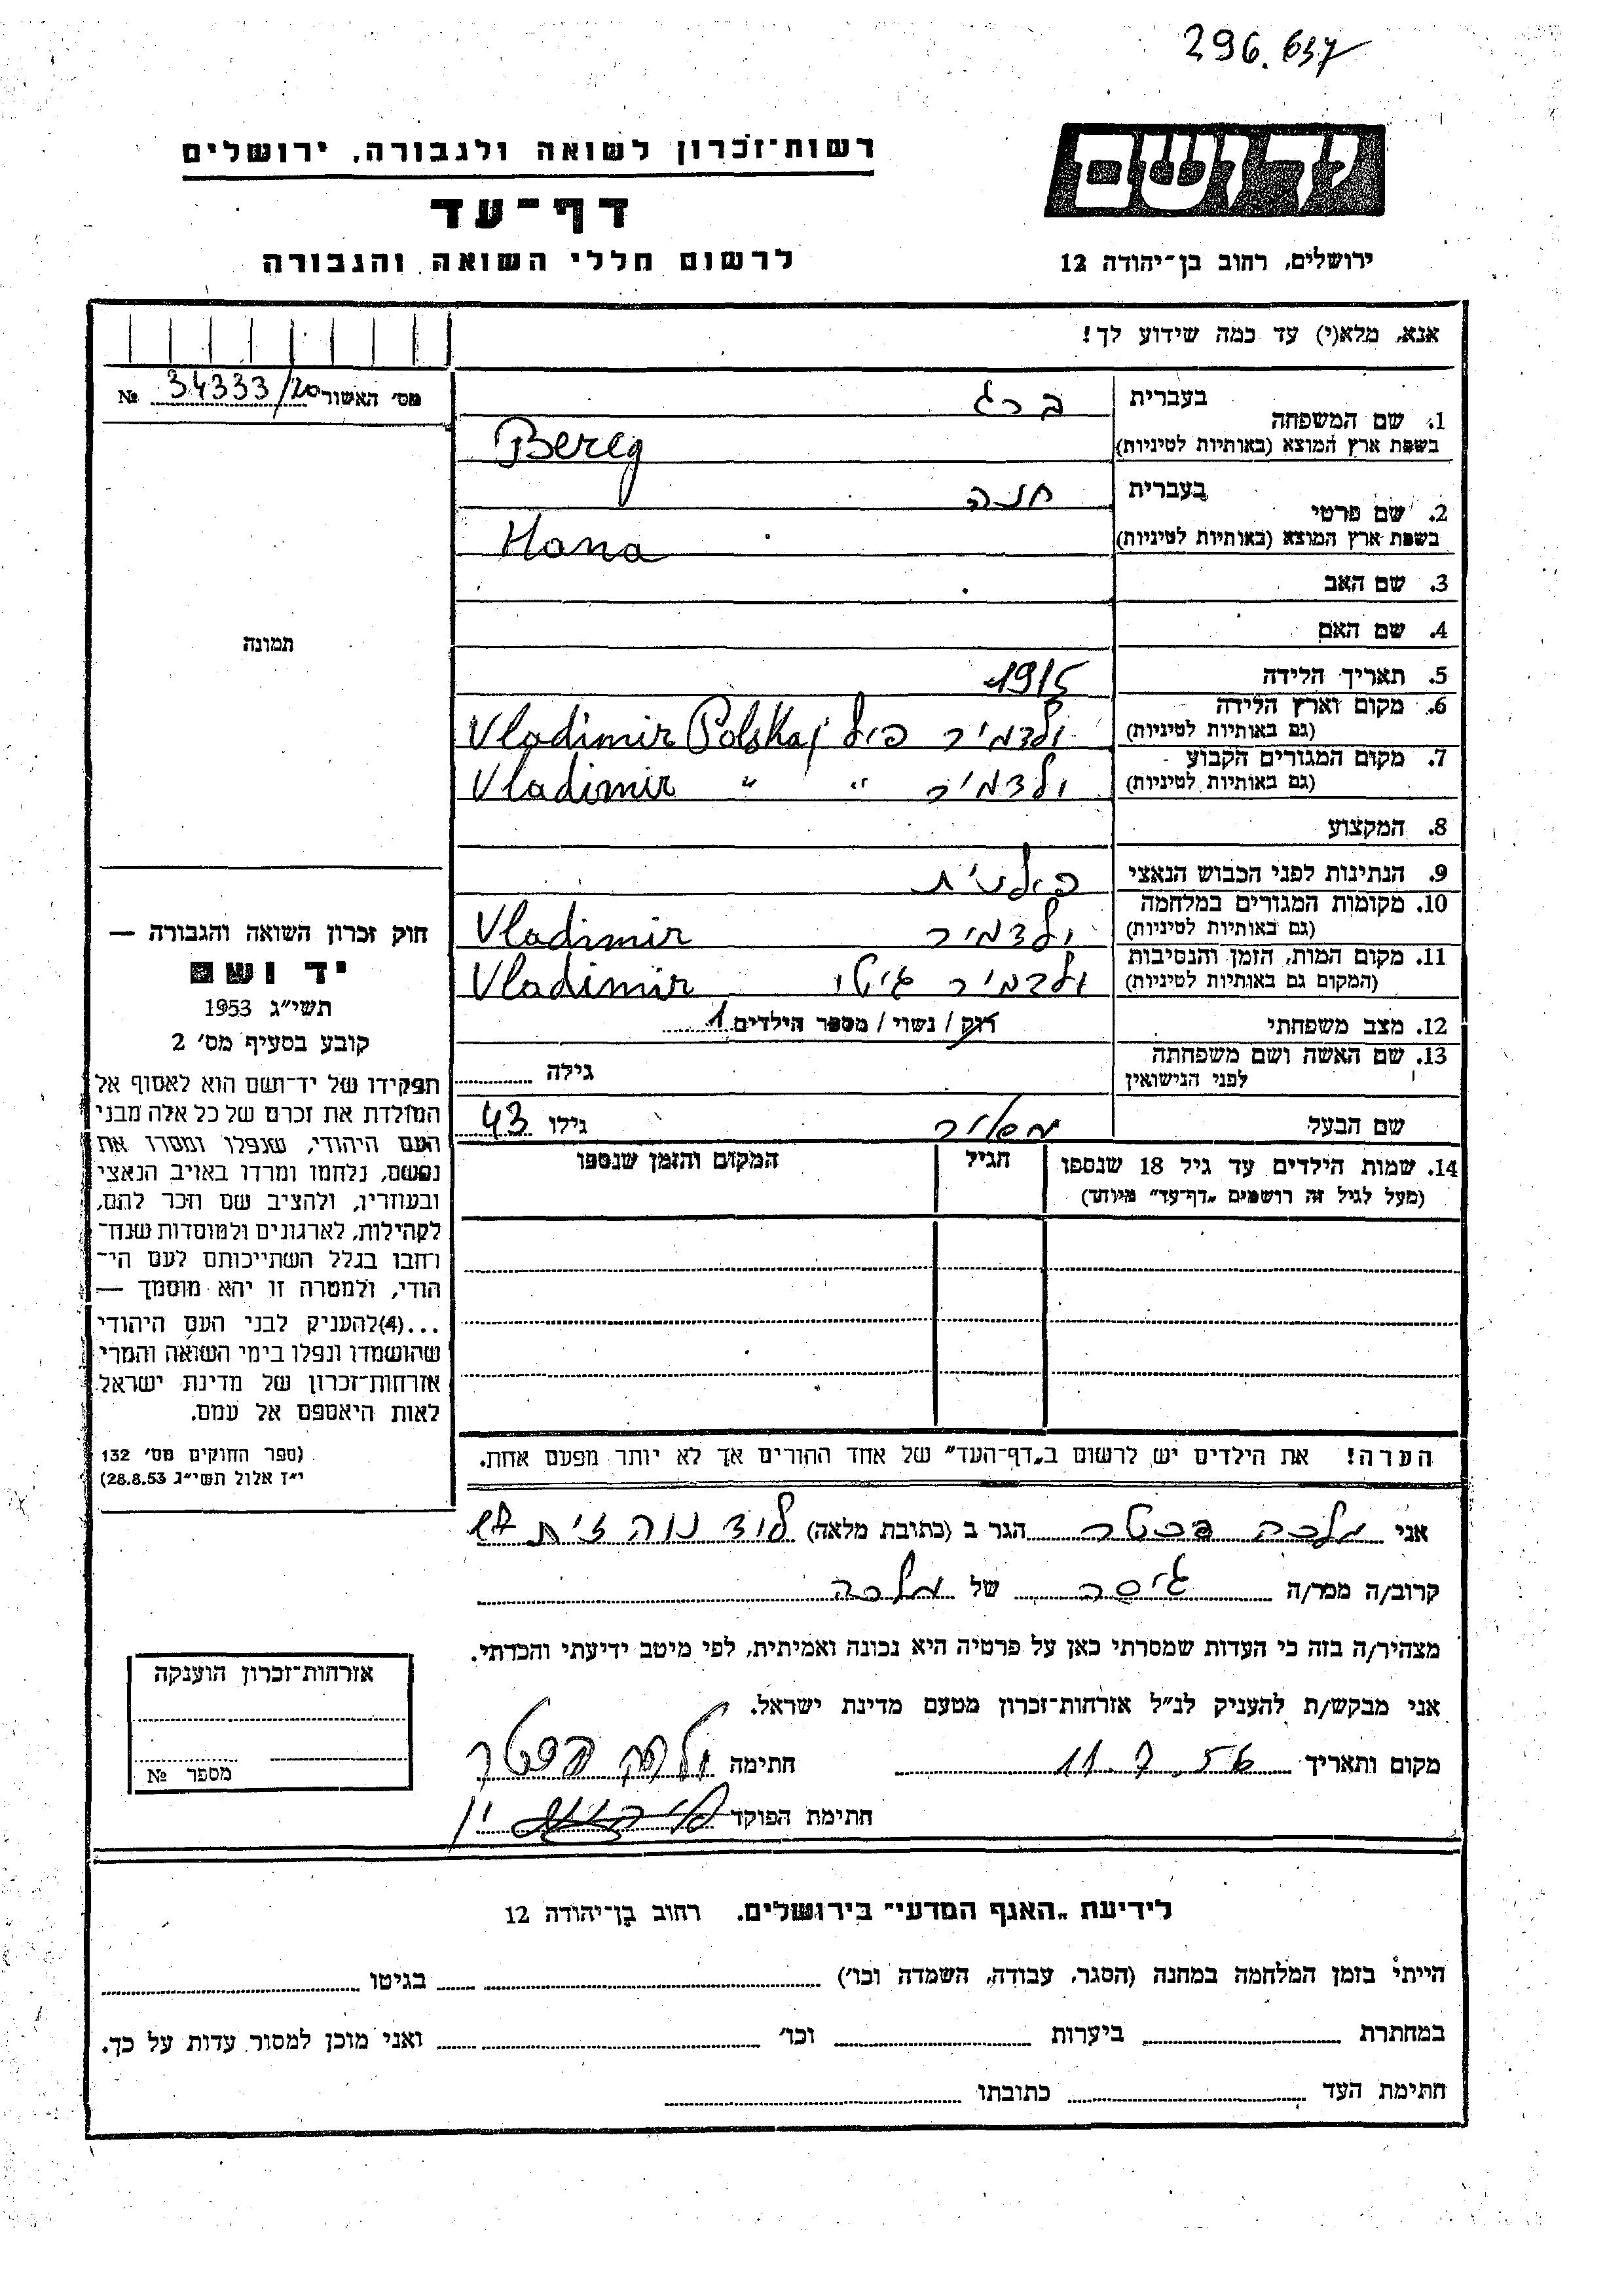 296.637
רשות־זכרון לשואה ולגבורה, ירושלים
יד ושם
דף־עד
לרשום חללי השואה והגבורה
ירושלים, רחוב בן־יהודה 12
אנא, מלא(י) עד כמה שידוע לך!
מס' האשור 34333/20 №
1. שם המשפחה
בעברית ברג
בשפת ארץ המוצא (באותיות לטיניות) Bereg
2. שם פרטי
בעברית חנה
בשפת ארץ המוצא (באותיות לטיניות) Hana
3. שם האב
4. שם האם
5. תאריך הלידה 1915
6. מקום וארץ הלידה
(גם באותיות לטיניות) ולדמיר פול Vladimir Polskaj
7. מקום המגורים הקבוע
(גם באותיות לטיניות) ולדמיר " " Vladimir
8. המקצוע
9. הנתינות לפני הכבוש הנאצי פולנית
10. מקומות המגורים במלחמה
(גם באותיות לטיניות) ולדמיר Vladimir
11. מקום המות, הזמן והנסיבות
(המקום גם באותיות לטיניות) ולדמיר גיטו Vladimir
12. מצב משפחתי רוק / נשוי / מספר הילדים 1
13. שם האשה ושם משפחתה
לפני הנישואין גילה
שם הבעל גילו 43
14. שמות הילדים עד גיל 18 שנספו הגיל המקום והזמן שנספו
(מעל לגיל זה רושמים „דף־עד" מיוחד)
הערה! את הילדים יש לרשום ב„דף־העד" של אחד ההורים אך לא יותר מפעם אחת.
תמונה
חוק זכרון השואה והגבורה —
יד ושם
תשי"ג 1953
קובע בסעיף מס' 2
תפקידו של יד־ושם הוא לאסוף אל
המולדת את זכרם של כל אלה מבני
העם היהודי, שנפלו ומסרו את
נפשם, נלחמו ומרדו באויב הנאצי
ובעוזריו, ולהציב שם וזכר להם,
לקהילות, לארגונים ולמוסדות שנח־
רחבו בגלל השתייכותם לעם הי־
הודי, ולמטרה זו יהא מוסמך —
...(4)להעניק לבני העם היהודי
שהושמדו ונפלו בימי השואה והמרי
אזרחות־זכרון של מדינת ישראל
לאות היאספם אל עמם.
(ספר החוקים מס' 132
י"ז אלול תשי"ג 28.8.53)
אני מלכה הגר ב (כתובת מלאה) לוד נוה זית
קרוב/ה מכר/ה גיסה של מלכה
מצהיר/ה בזה כי העדות שמסרתי כאן על פרטיה היא נכונה ואמיתית, לפי מיטב ידיעתי והכרתי.
אני מבקש/ת להעניק לנ"ל אזרחות־זכרון מטעם מדינת ישראל.
מקום ותאריך 11.7.56 חתימה
חתימת הפוקד
אזרחות־זכרון הוענקה
מספר №
לידיעת „האגף המדעי" בירושלים. רחוב בן־יהודה 12
הייתי בזמן המלחמה במחנה (הסגר, עבודה, השמדה וכו') בגיטו
במחתרת ביערות וכו' ואני מוכן למסור עדות על כך.
חתימת העד כתובתו